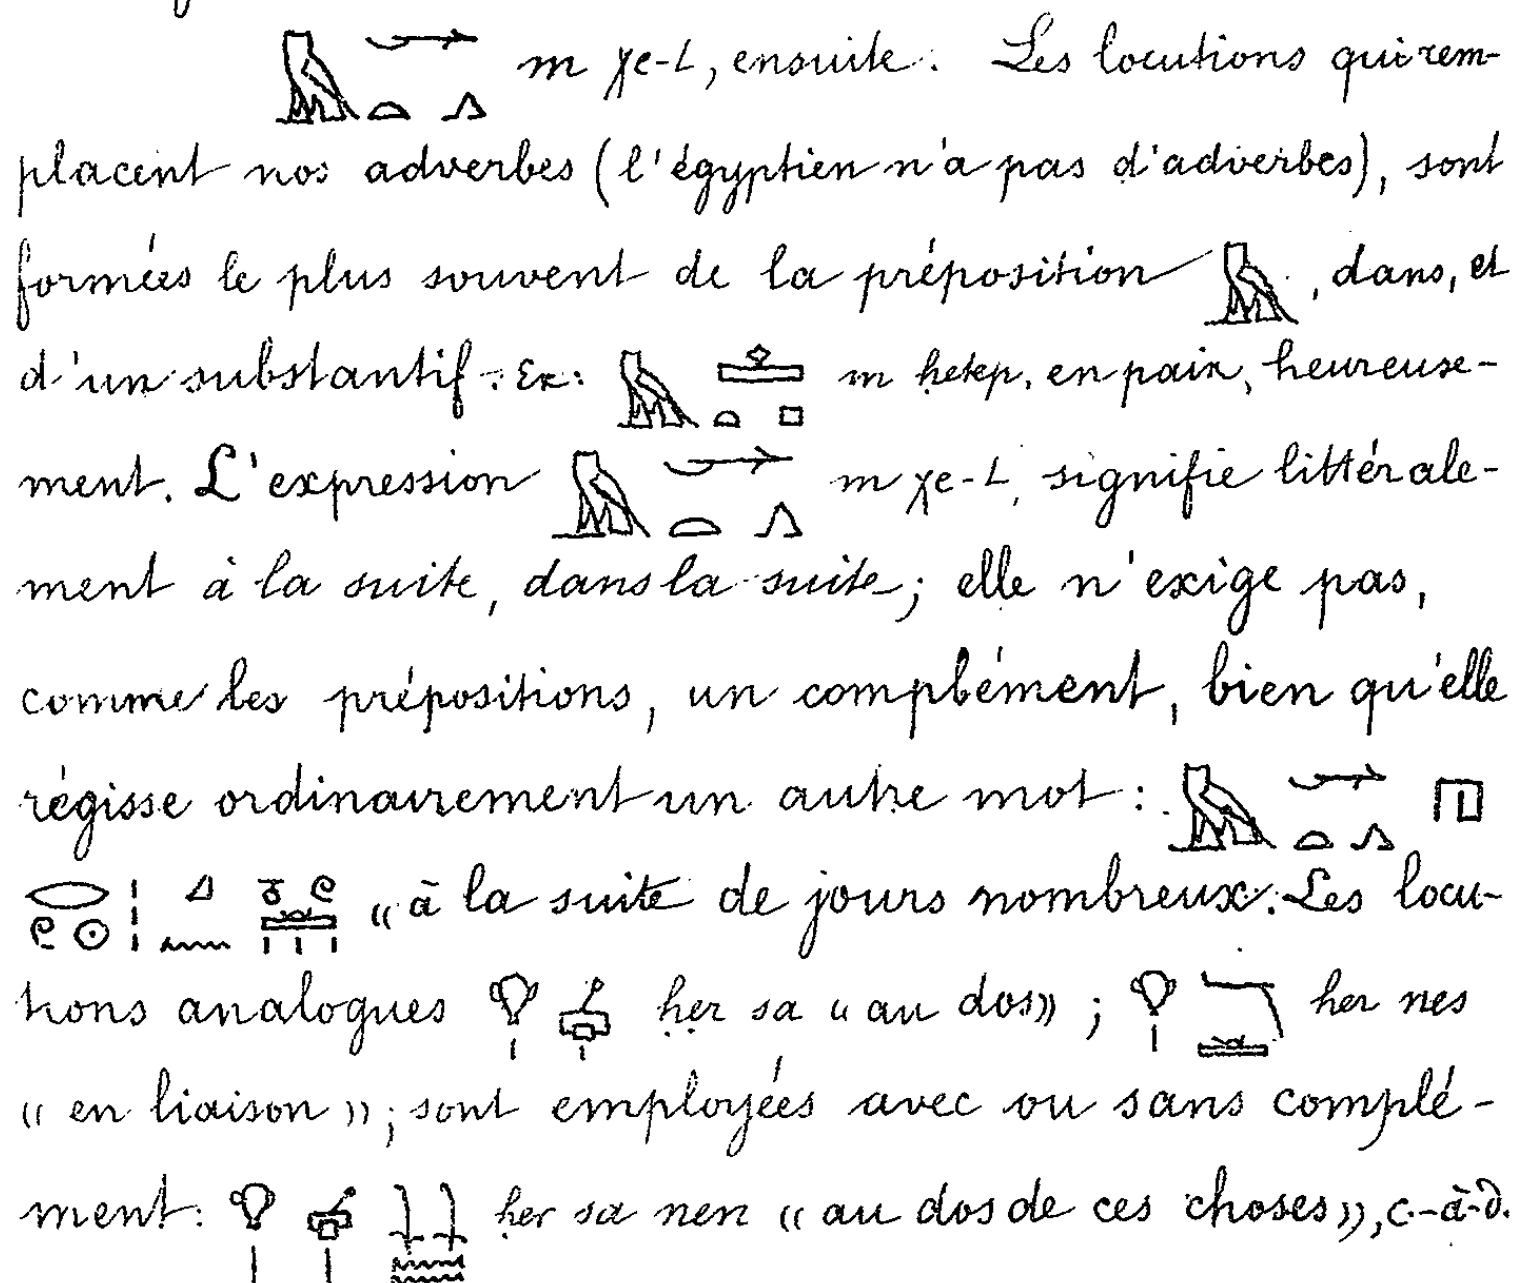 𓅓 𓆱𓏏𓂻 m χe-t, ensuite. Les locutions qui rem-
placent nos adverbes (l'égyptien n'a pas d'adverbes), sont
formées le plus souvent de la préposition 𓅓, dans, et
d'un substantif. Ex: 𓅓 𓊵𓏏𓊪 m ḥetep, en paix, heureuse-
ment. L'expression 𓅓 𓆱𓏏𓂻 m χe-t, signifie littérale-
ment à la suite, dans la suite; elle n'exige pas,
comme les prépositions, un complément, bien qu'elle
régisse ordinairement un autre mot: 𓅓 𓆱𓏏𓂻 𓉔
«à la suite de jours nombreux. Les locu-
tions analogues 𓁷𓏤 ḥer sa «au dos»; 𓁷𓏤 ḥer nes
«en liaison»; sont employées avec ou sans complé-
ment: 𓁷𓏤 ḥer sa nen «au dos de ces choses», c.-à-d.